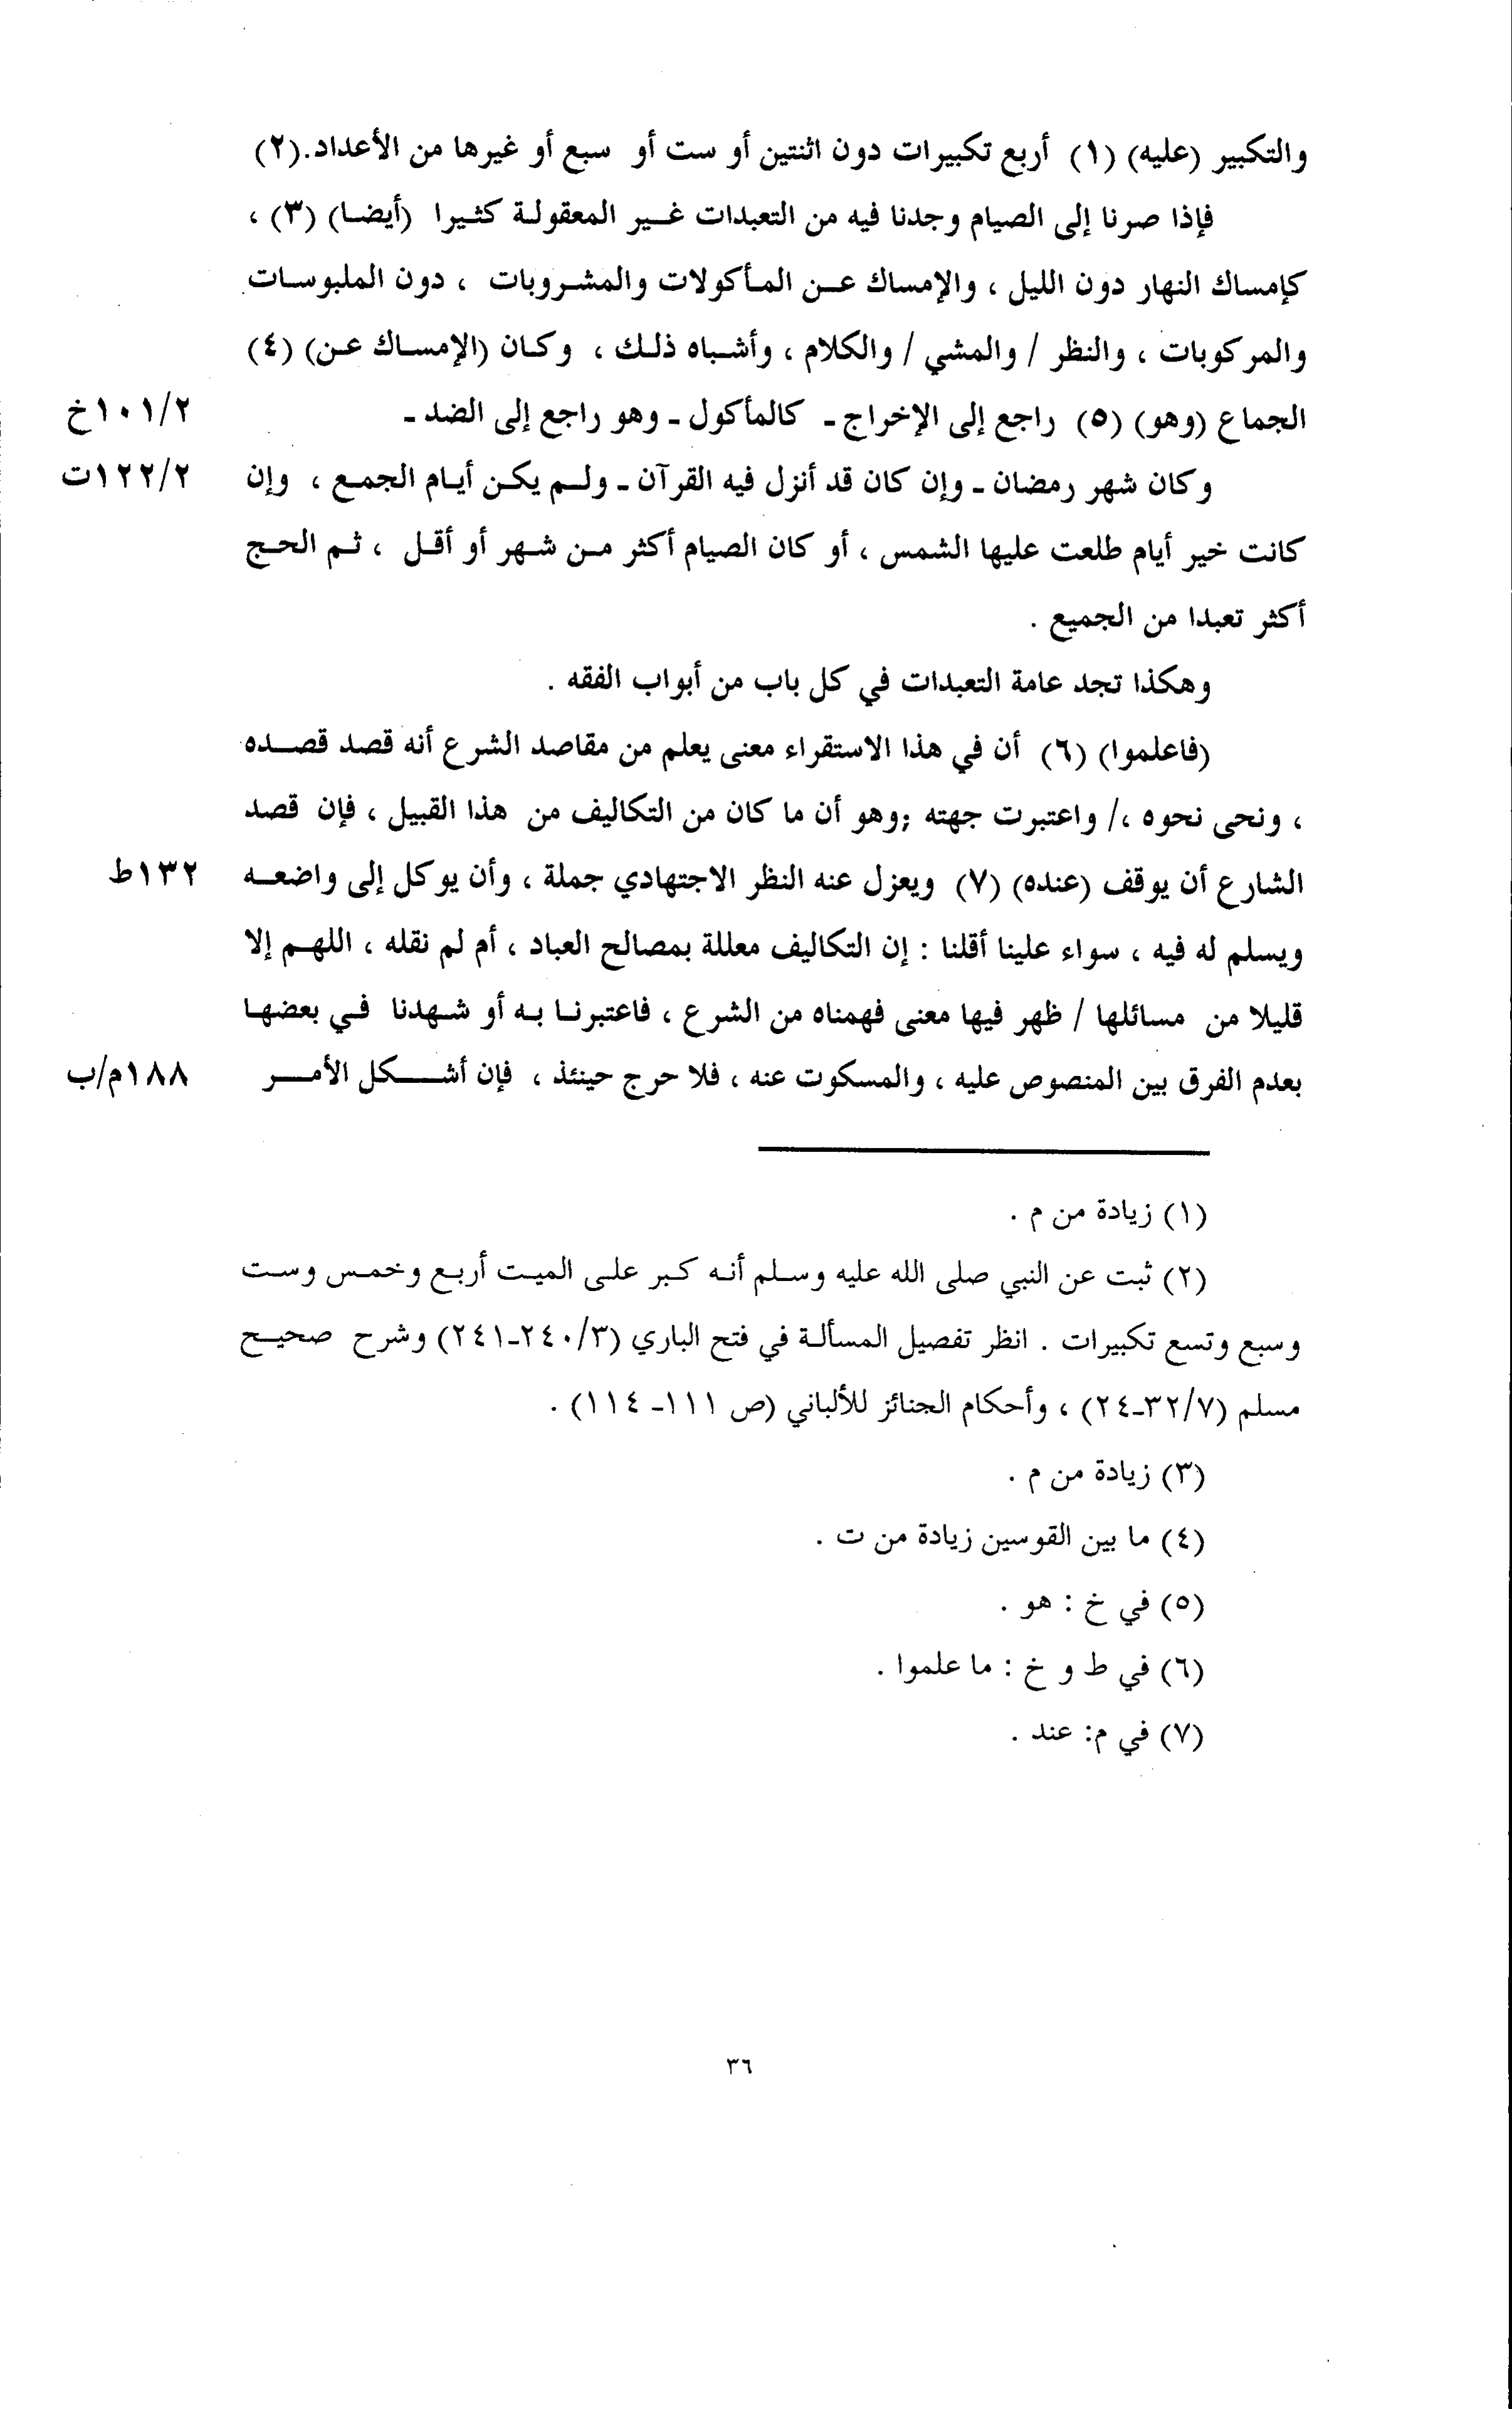 والتكبير (عليه) (١) أربع تكبيرات دون اثنتين أو ست أو سبع أو غيرها من الأعداد.(٢)
فإذا صرنا إلى الصيام وجدنا فيه من التعبدات غير المعقولة كثيرا (أيضا) (٣) ،
كإمساك النهار دون الليل ، والإمساك عن المأكولات والمشروبات ، دون الملبوسات
والمركوبات ، والنظر / والمشي / والكلام ، وأشباه ذلك ، وكان (الإمساك عن) (٤)
الجماع (وهو) (٥) راجع إلى الإخراج - كالمأكول - وهو راجع إلى الضد -
١٠١/٢خ
وكان شهر رمضان - وإن كان قد أنزل فيه القرآن - ولم يكن أيام الجمع ، وإن
١٢٢/٢ت
كانت خير أيام طلعت عليها الشمس ، أو كان الصيام أكثر من شهر أو أقل ، ثم الحج
أكثر تعبدا من الجميع .
وهكذا تجد عامة التعبدات في كل باب من أبواب الفقه .
(فاعلموا) (٦) أن في هذا الاستقراء معنى يعلم من مقاصد الشرع أنه قصد قصده
، ونحى نحوه ،/ واعتبرت جهته ;وهو أن ما كان من التكاليف من هذا القبيل ، فإن قصد
الشارع أن يوقف (عنده) (٧) ويعزل عنه النظر الاجتهادي جملة ، وأن يوكل إلى واضعه
١٣٢ط
ويسلم له فيه ، سواء علينا أقلنا : إن التكاليف معللة بمصالح العباد ، أم لم نقله ، اللهم إلا
قليلا من مسائلها / ظهر فيها معنى فهمناه من الشرع ، فاعتبرنا به أو شهدنا في بعضها
بعدم الفرق بين المنصوص عليه ، والمسكوت عنه ، فلا حرج حينئذ ، فإن أشكل الأمر
١٨٨م/ب
(١) زيادة من م .
(٢) ثبت عن النبي صلى الله عليه وسلم أنه كبر على الميت أربع وخمس وست
وسبع وتسع تكبيرات . انظر تفصيل المسألة في فتح الباري (٢٤٠/٣-٢٤١) وشرح صحيح
مسلم (٣٢/٧-٢٤) ، وأحكام الجنائز للألباني (ص ١١١- ١١٤) .
(٣) زيادة من م .
(٤) ما بين القوسين زيادة من ت .
(٥) في خ : هو .
(٦) في ط و خ : ما علموا .
(٧) في م: عند .
٣٦